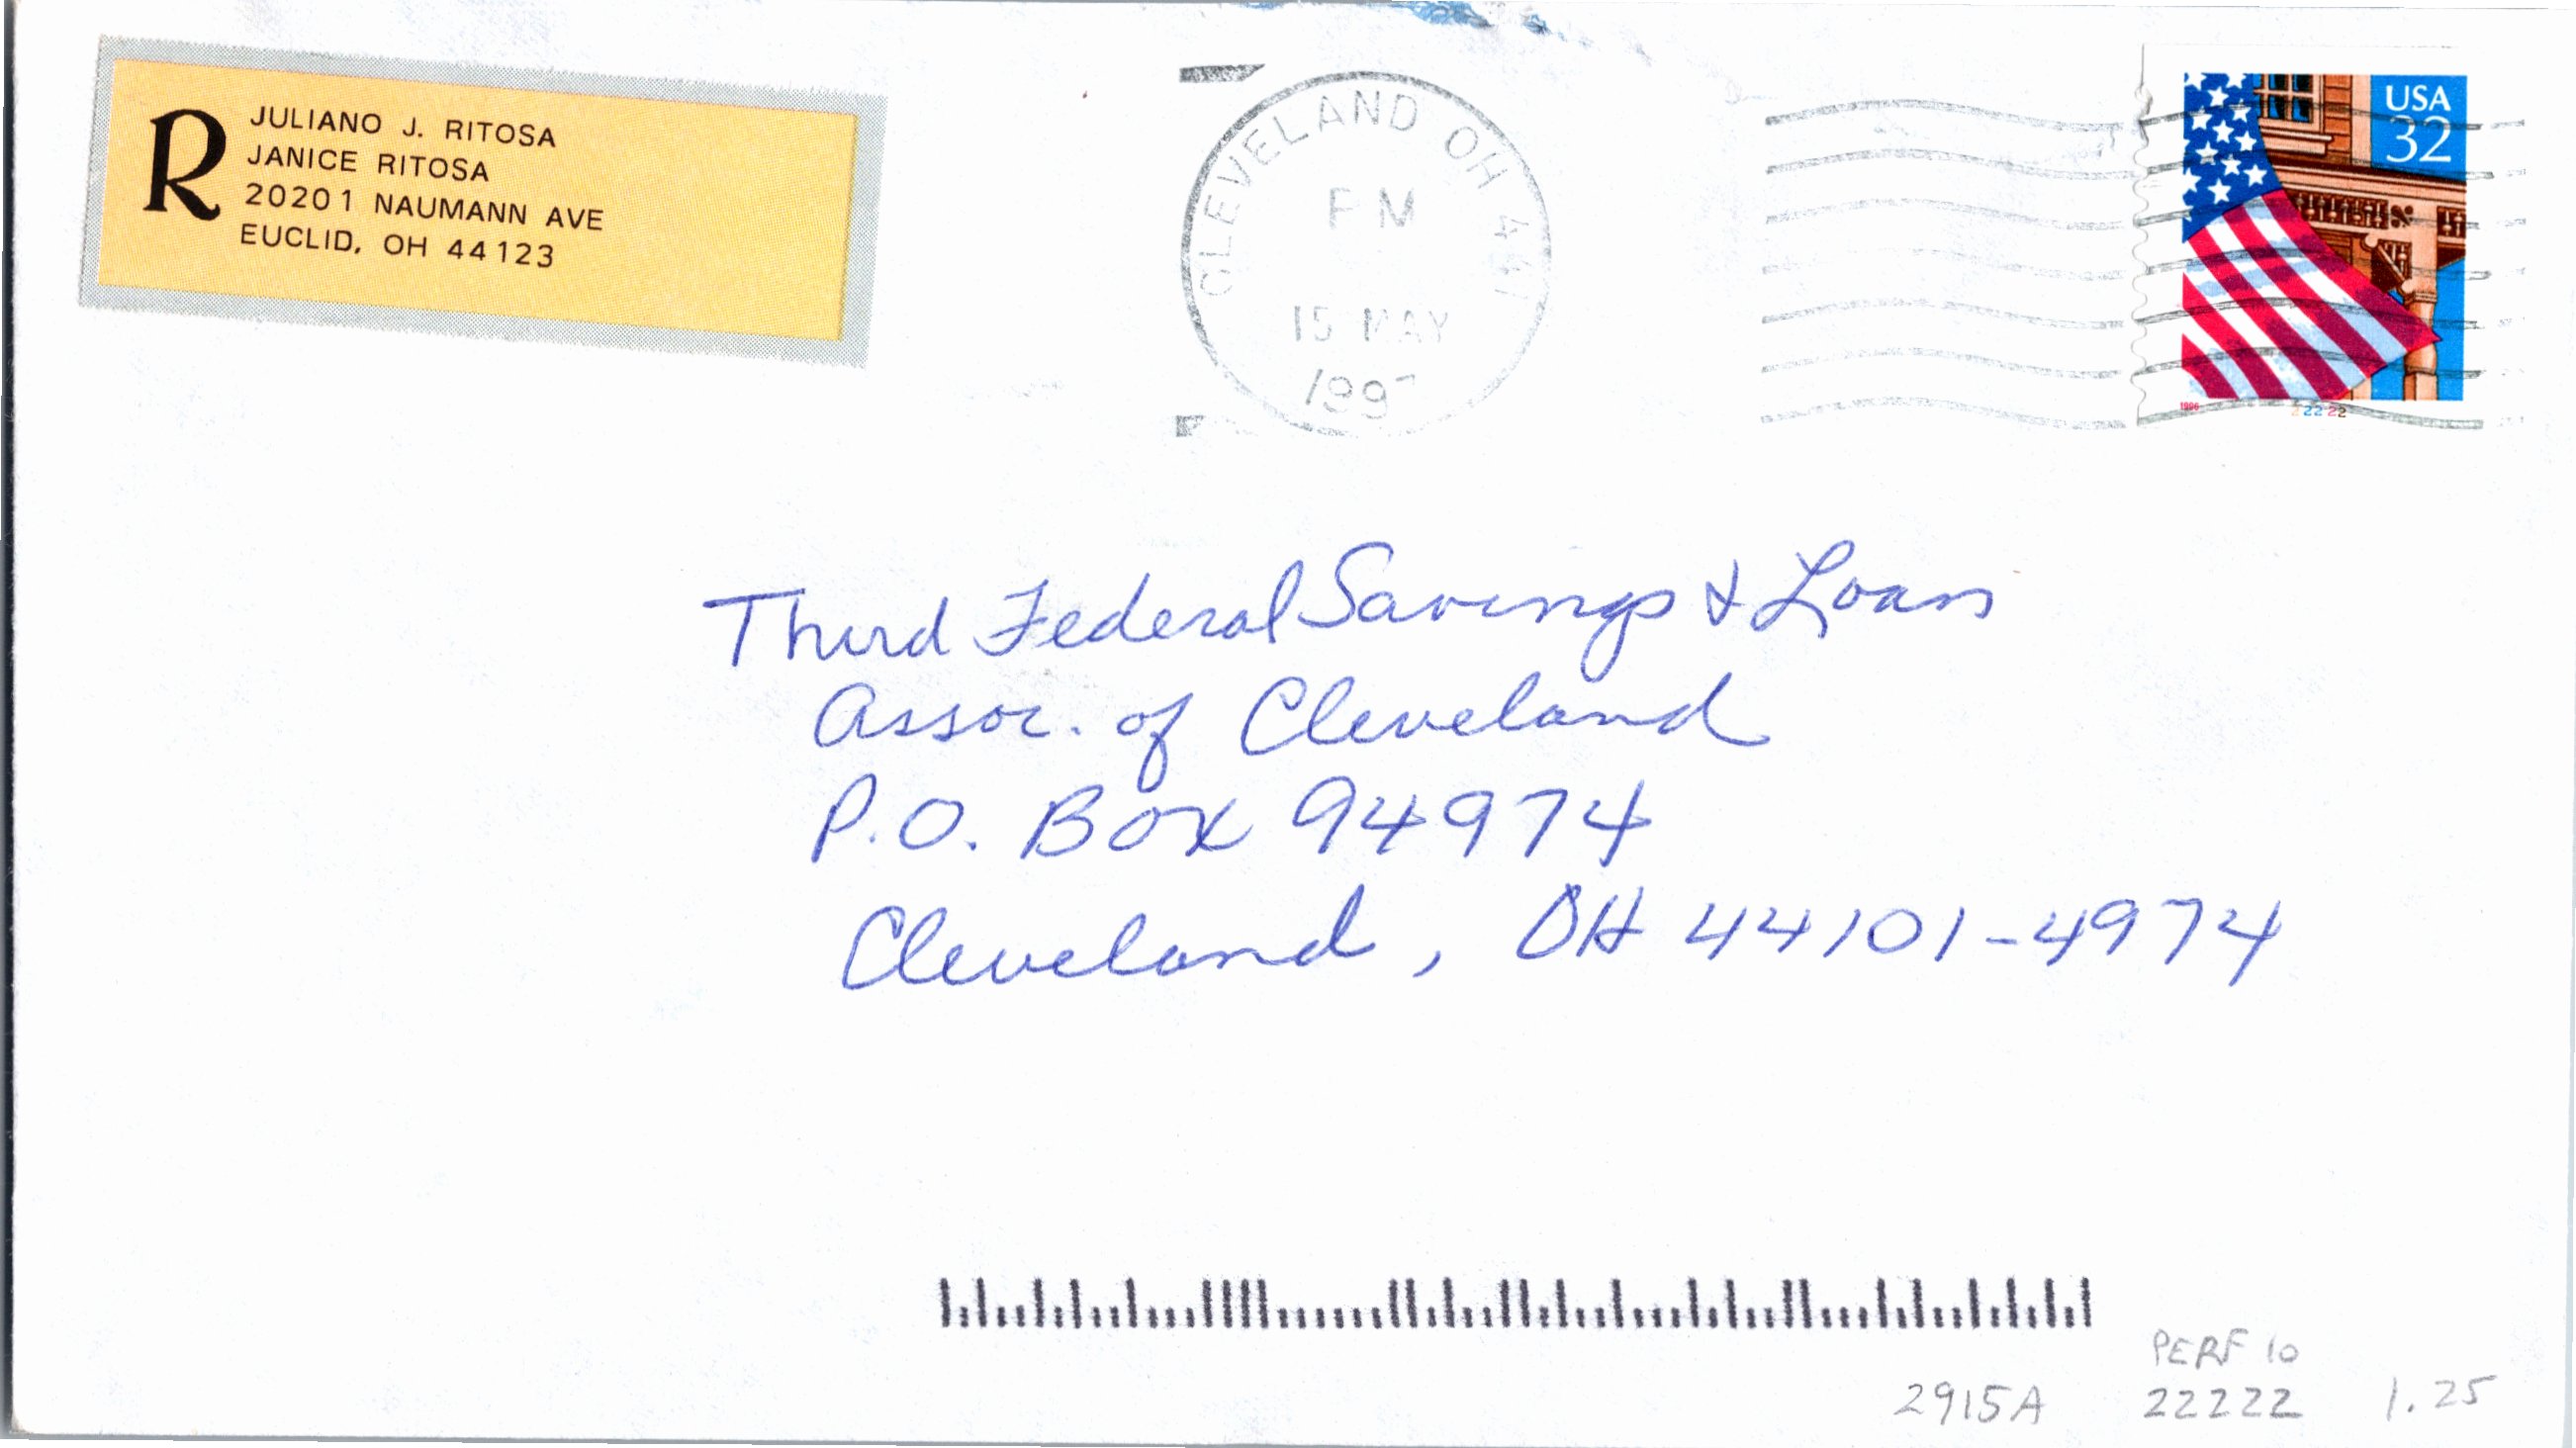 R
JULIANO J. RITOSA
JANICE RITOSA
20201 NAUMANN AVE
EUCLID, OH 44123
CLEVELAND OH 441
PM
15 MAY
199
USA
32
1996
22222
Third Federal Savings & Loan
Assoc. of Cleveland
P.O. Box 94974
Cleveland, OH 44101-4974
PERF 10
2915A 22222 1.25